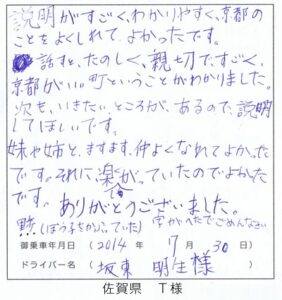 説明がすごく、わかりやすく、京都の
ことをよくしれて、よかったです。
話すと、たのしく、親切で、すごく、
京都がいい町ということがわかりました。
次も、いきたい、ところが、あるので、説明
してほしいです。
妹や姉と、ますます、仲よくなれてよかった
です。それに、楽がっていたのでよかった
です。ありがとうございました。
(ぼう子をかぶっていた) 字がへたでごめんなさい
御乗車年月日 (2014年 7月 30日)
ドライバー名 (坂東 明生様)
佐賀県 T様